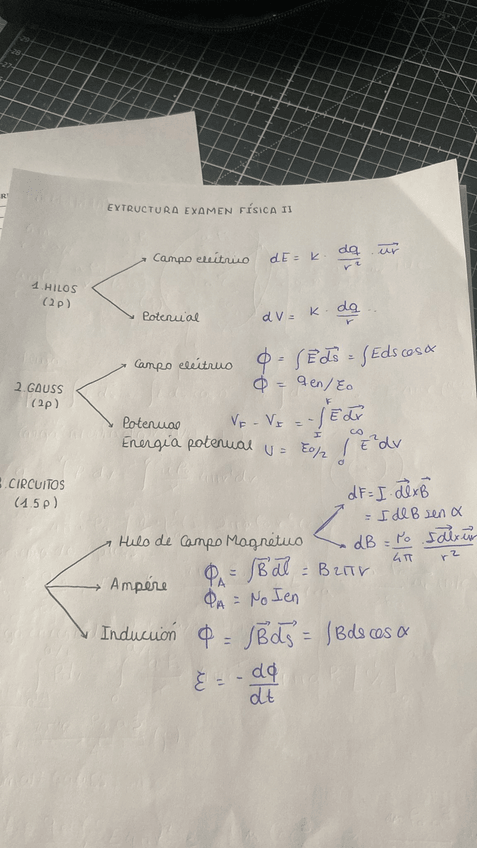 EXTRUCTURA EXAMEN FÍSICA II
1. HILOS
(2p)
Campo eléctrico dE = K · dq/r² · ur
Potencial dV = K · dq/r ..
2. GAUSS
(2p)
Campo eléctrico ϕ = ∫E ds = ∫Eds cos α
ϕ = qen/ε0
Potencial VF - VI = -∫_I^F E dr
Energía potencial U = ε0/2 ∫_0^∞ E² dv
. CIRCUITOS
(1.5p)
Hilo de Campo Magnético
dF = I · dl x B
= I dl B sen α
dB = μ0/4π · I dl x ur/r²
Ampére ϕA = ∫B dl = B2πr
ϕA = μ0 Ien
Inducción ϕ = ∫B ds = ∫Bds cos α
ε = - dϕ/dt